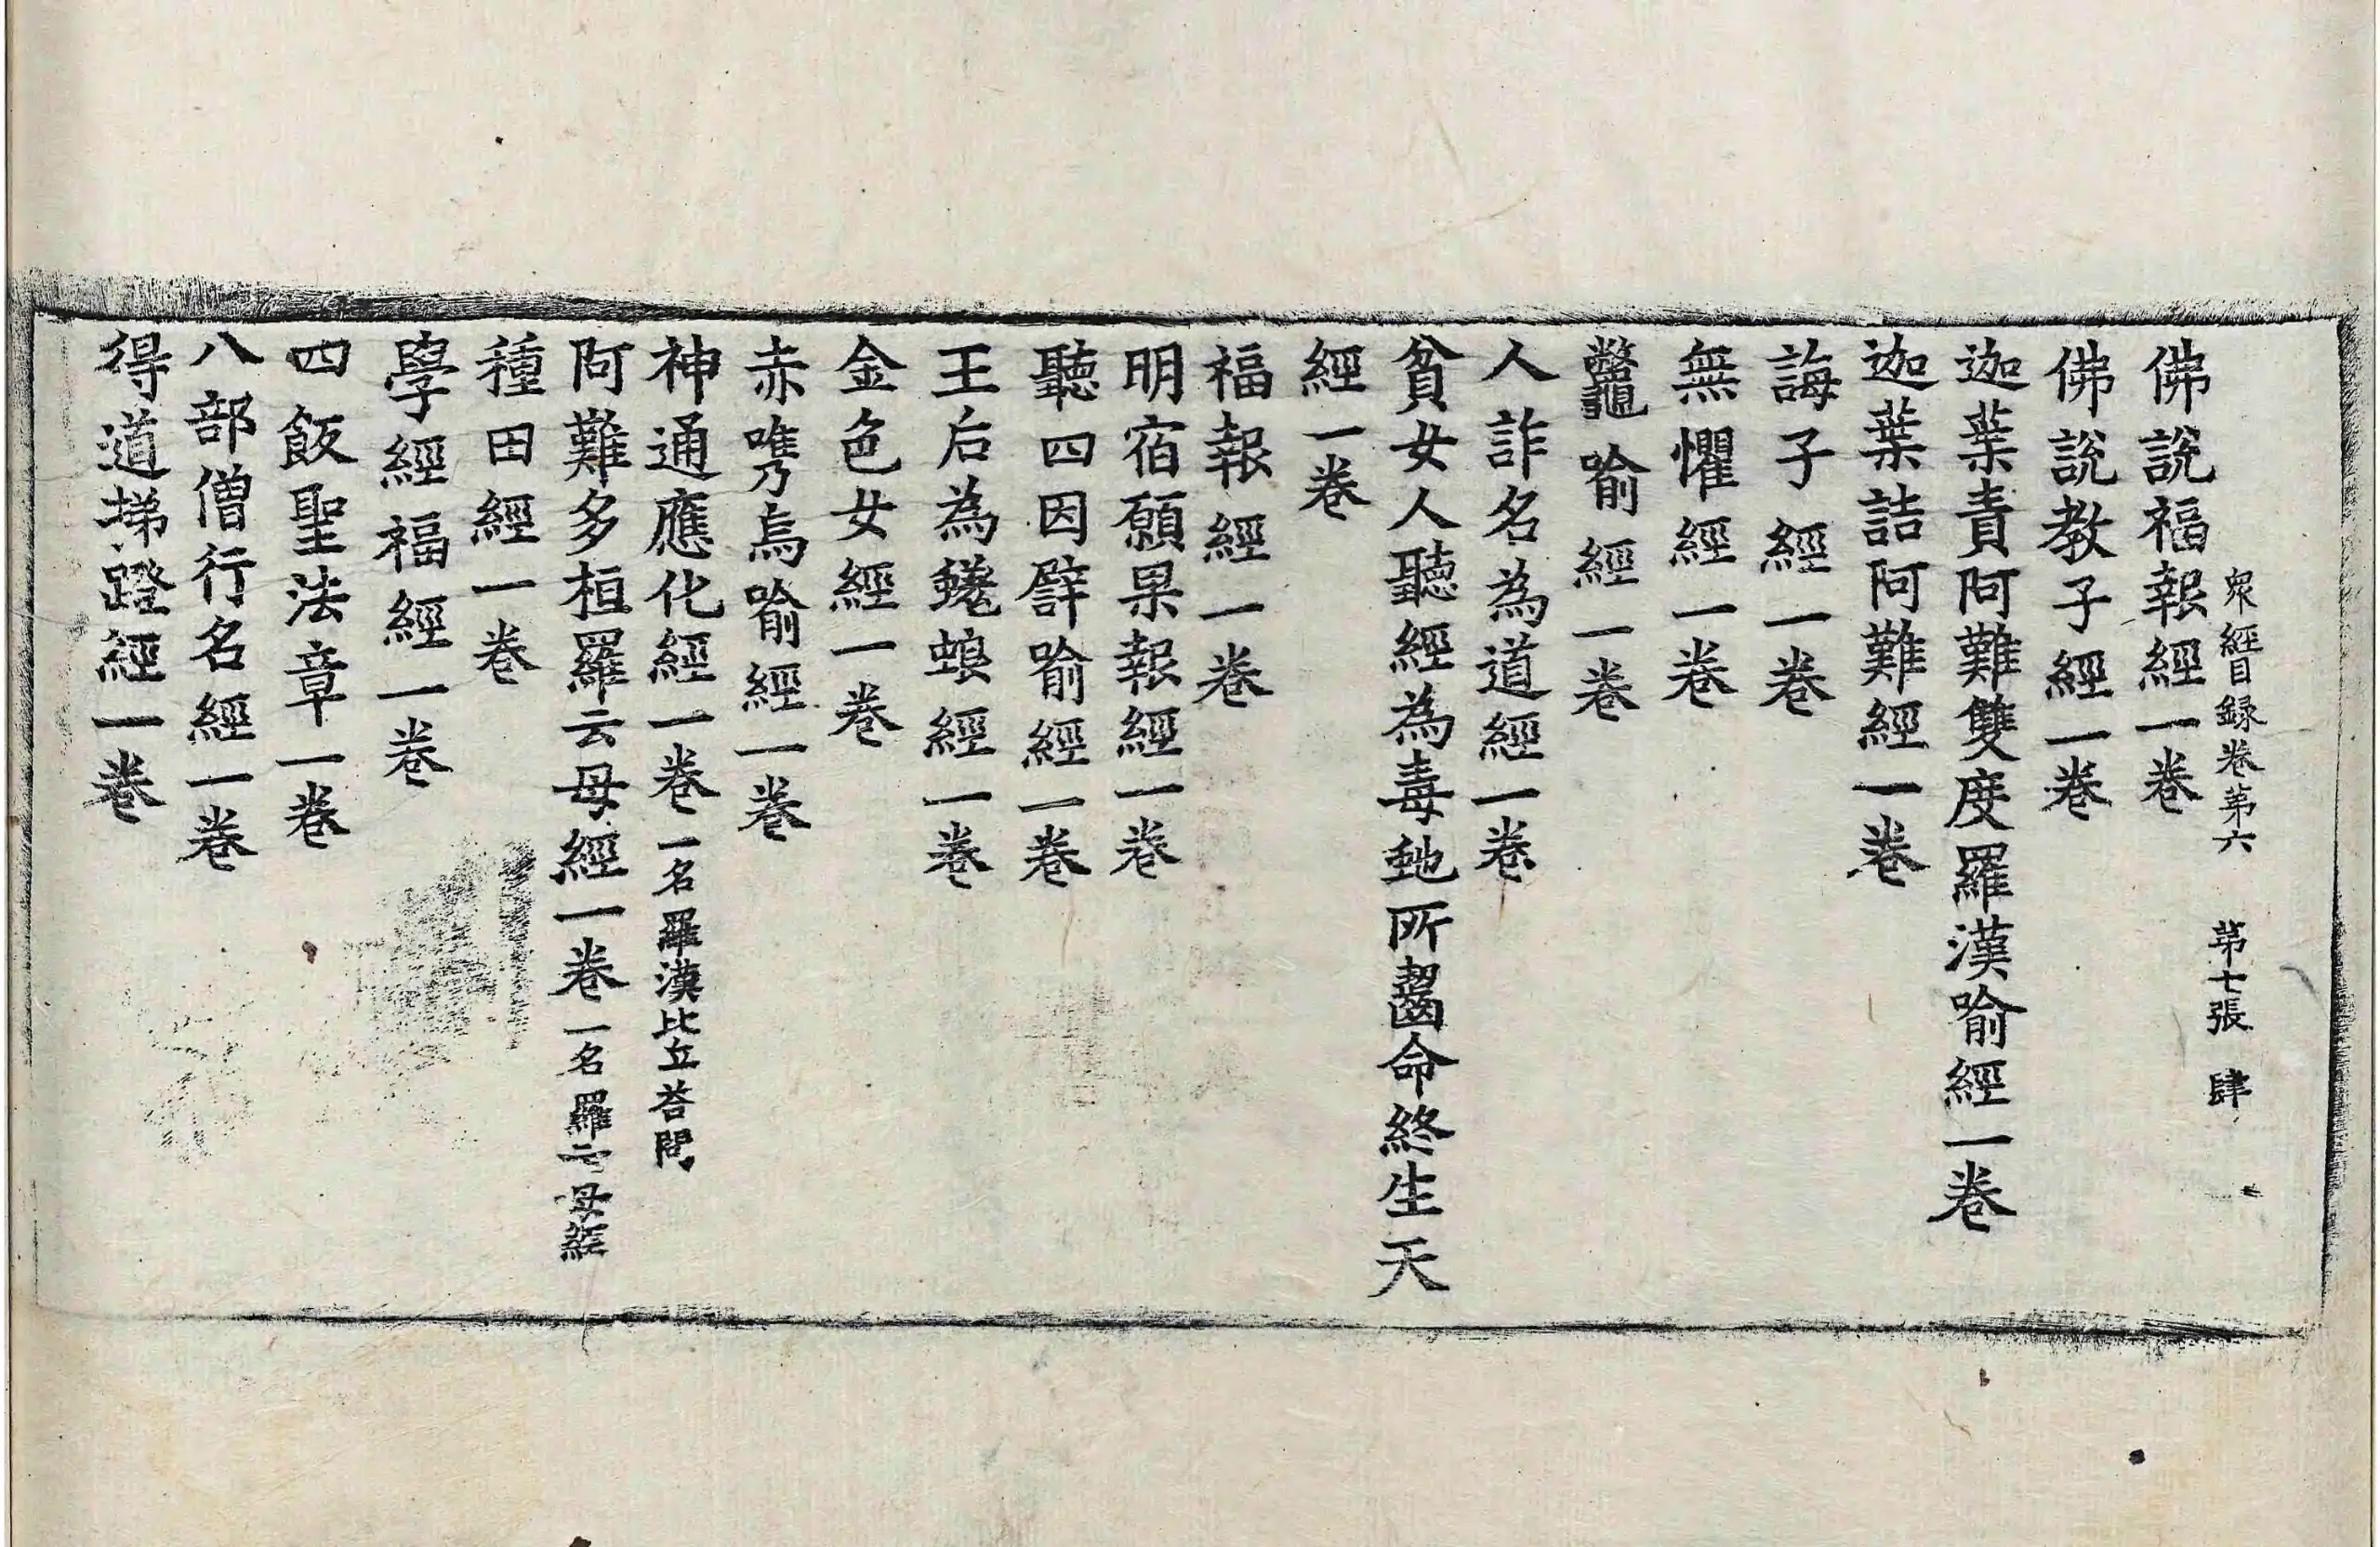 衆經目録卷第六　第七張　肆
佛說福報經一卷
佛說教子經一卷
迦葉責阿難雙度羅漢喻經一卷
迦葉詰阿難經一卷
誨子經一卷
無懼經一卷
鼈喻經一卷
人詐名為道經一卷
貧女人聽經為毒虵所齧命終生天
經一卷
福報經一卷
明宿願果報經一卷
聽四因譬喻經一卷
王后為蜣蜋經一卷
金色女經一卷
赤嘴烏喻經一卷
神通應化經一卷一名羅漢比丘荅問
阿難多桓羅云母經一卷一名羅云母經
種田經一卷
學經福經一卷
四飯聖法章一卷
八部僧行名經一卷
得道梯蹬經一卷